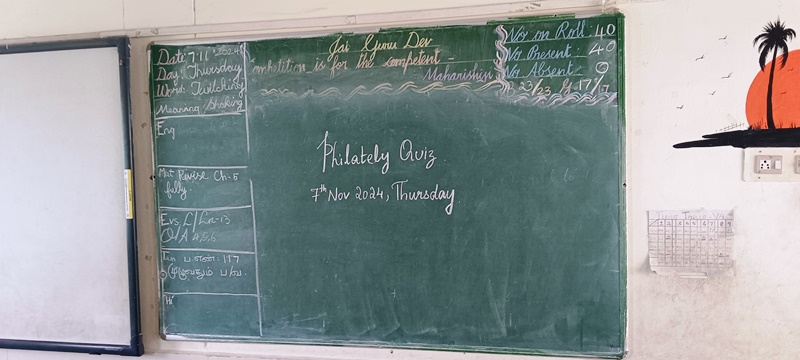 Date: 7.11.2024
Day: Thursday
Word: Twitching
Meaning: Shaking
Eng
Mat Revise Ch-5
fully.
Evs. L/ Ln-13
Q/A 4,5,6
117
Jai Guru Dev
is for the competent -
Maharishiji
No on Roll: 40
No. Present: 40
No. Absent: 0
B 23/23 G 17/17
Philately Quiz
7th Nov 2024, Thursday